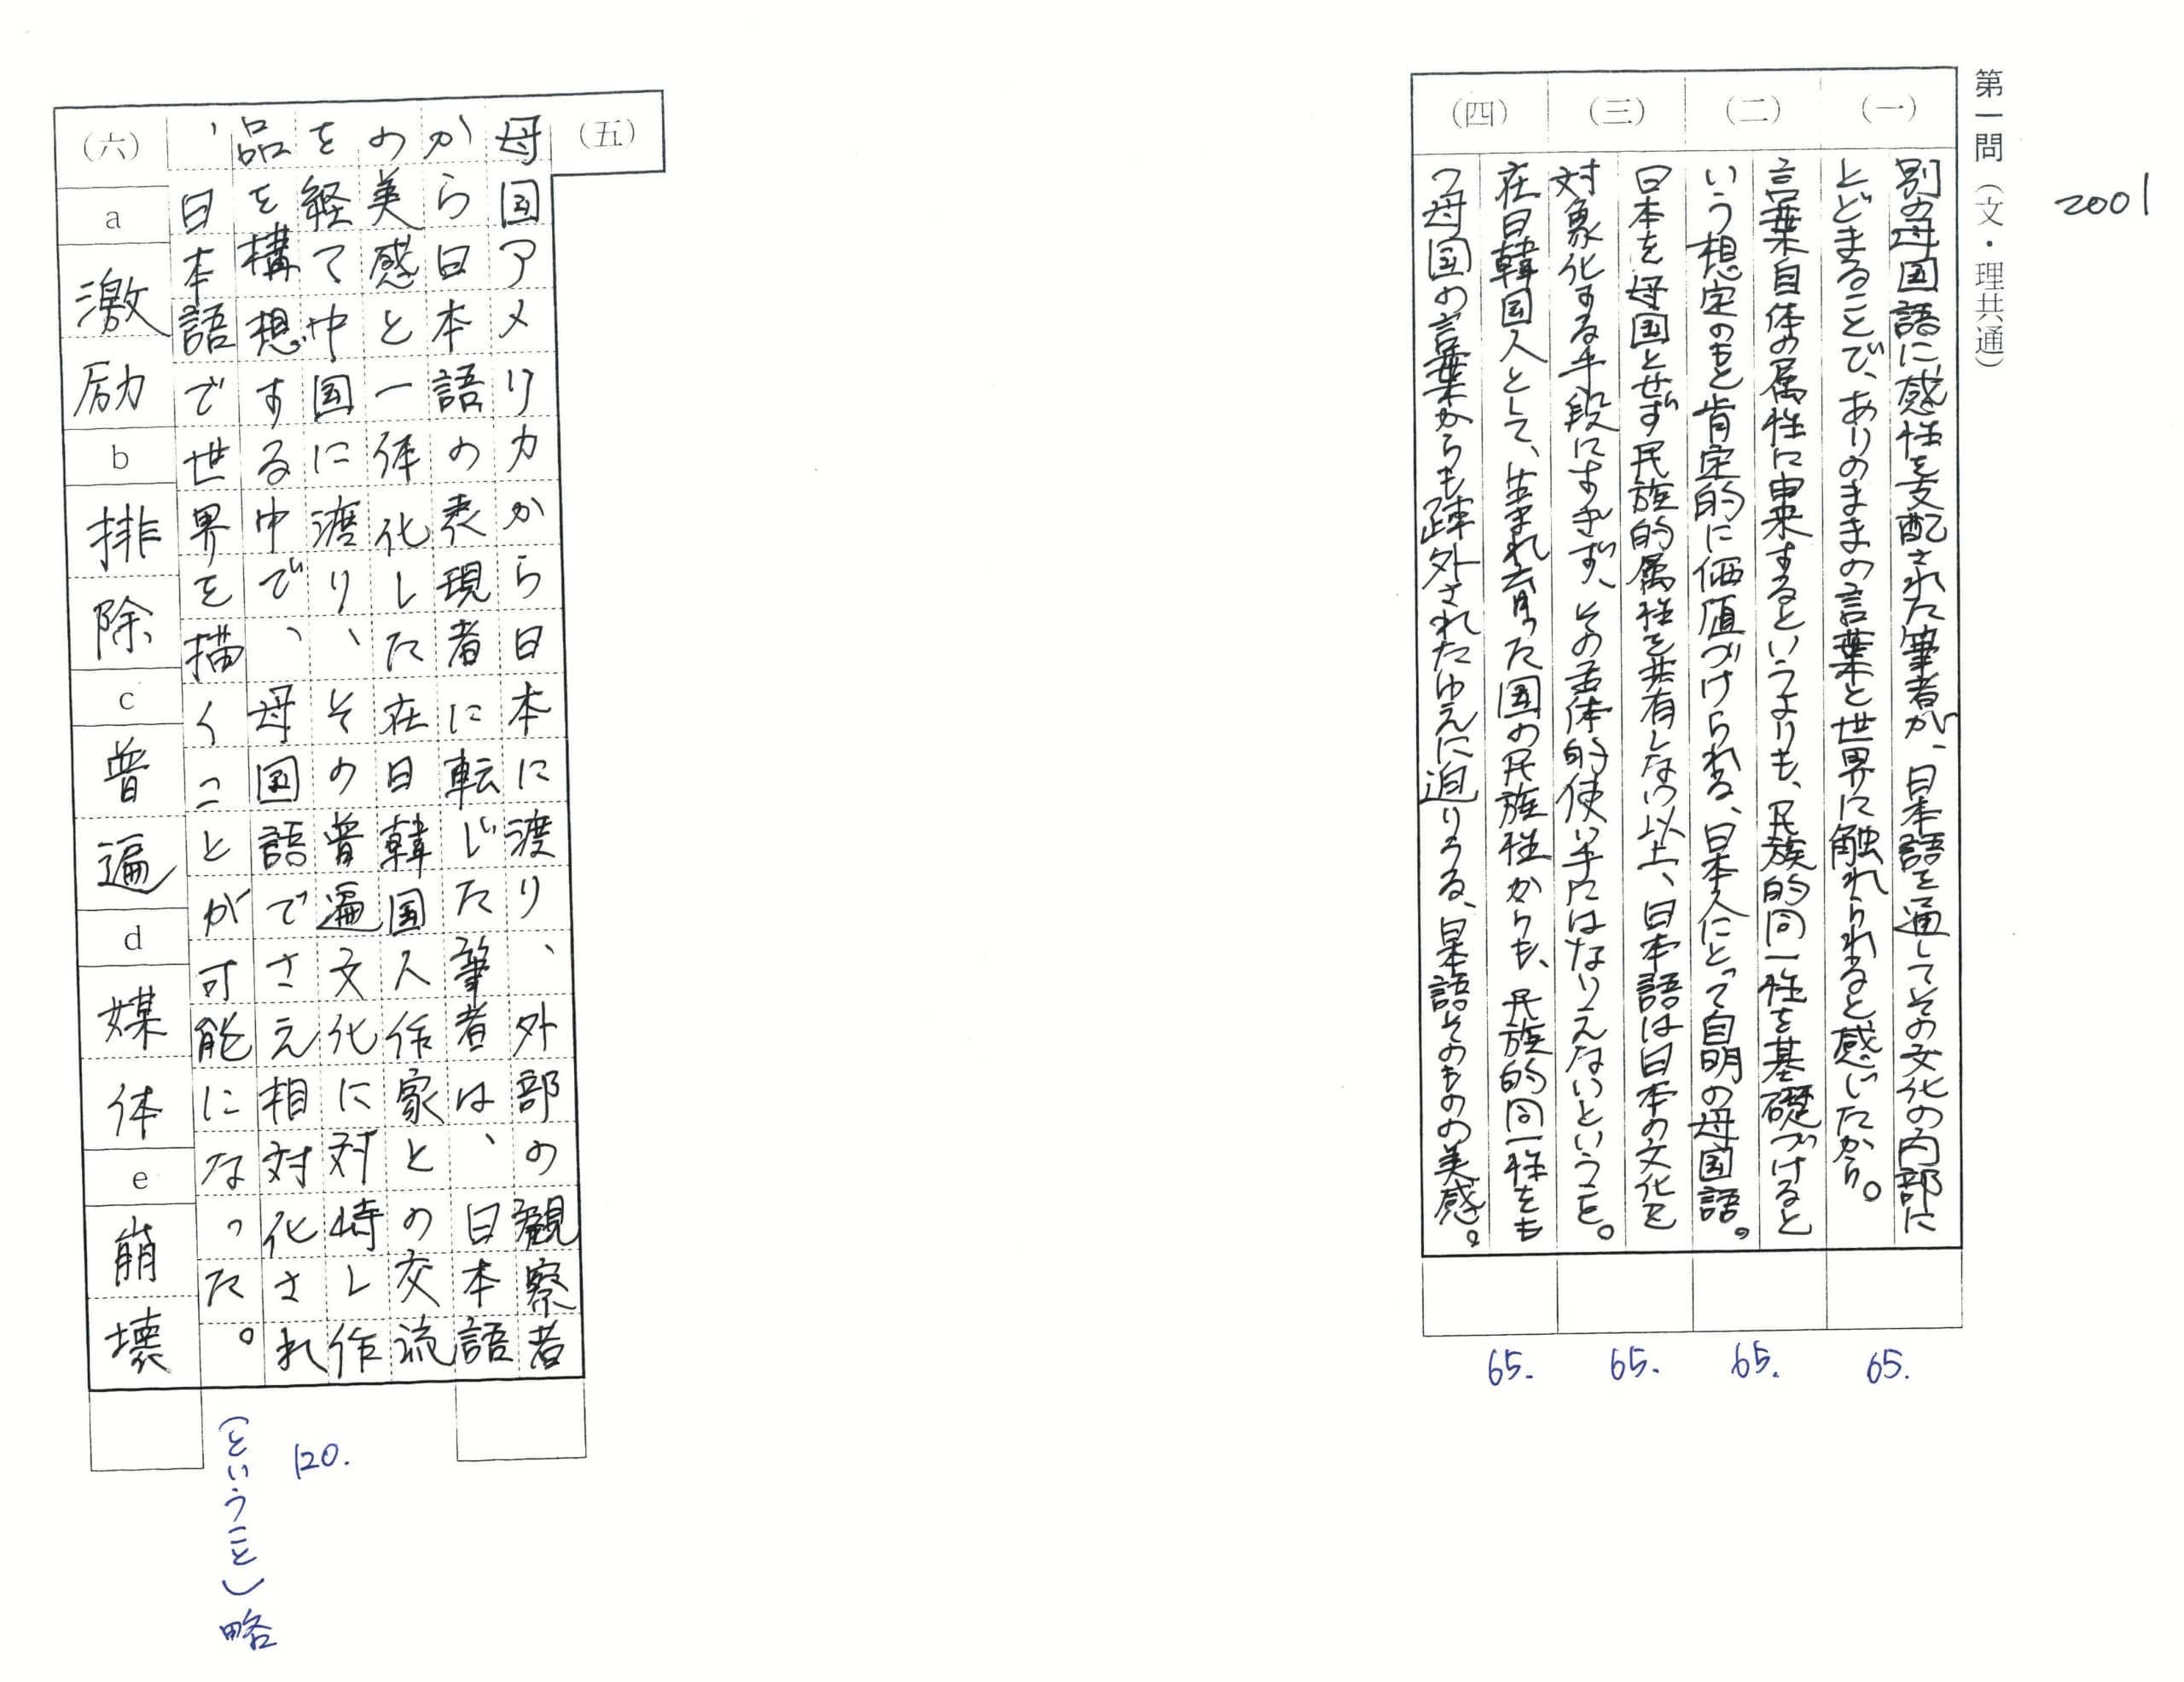 2001
第一問（文・理共通）
（一）
別の母国語に感性を支配された筆者が、日本語を通してその文化の内部に
とどまることで、ありのままの言葉と世界に触れられると感じたから。
（二）
言葉自体の属性に由来するというよりも、民族的同一性を基礎づけると
いう想定のもと肯定的に価値づけられる、日本人にとって自明の母国語。
（三）
日本を母国とせず民族的属性を共有しない以上、日本語は日本の文化を
対象化する手段にすぎず、その主体的使い手にはなりえないということ。
（四）
在日韓国人として、生まれ育った国の民族性からも、民族的同一性をも
つ母国の言葉からも疎外されたゆえに迫りうる、日本語そのものの美感。
65.
65.
65.
65.
（五）
母国アメリカから日本に渡り、外部の観察者
から日本語の表現者に転じた筆者は、日本語
の美感と一体化した在日韓国人作家との交流
を経て中国に渡り、その普遍文化に対峙し作
品を構想する中で、母国語でさえ相対化され
、日本語で世界を描くことが可能になった。
120.
（ということ）略
（六）
a
激励
b
排除
c
普遍
d
媒体
e
崩壊